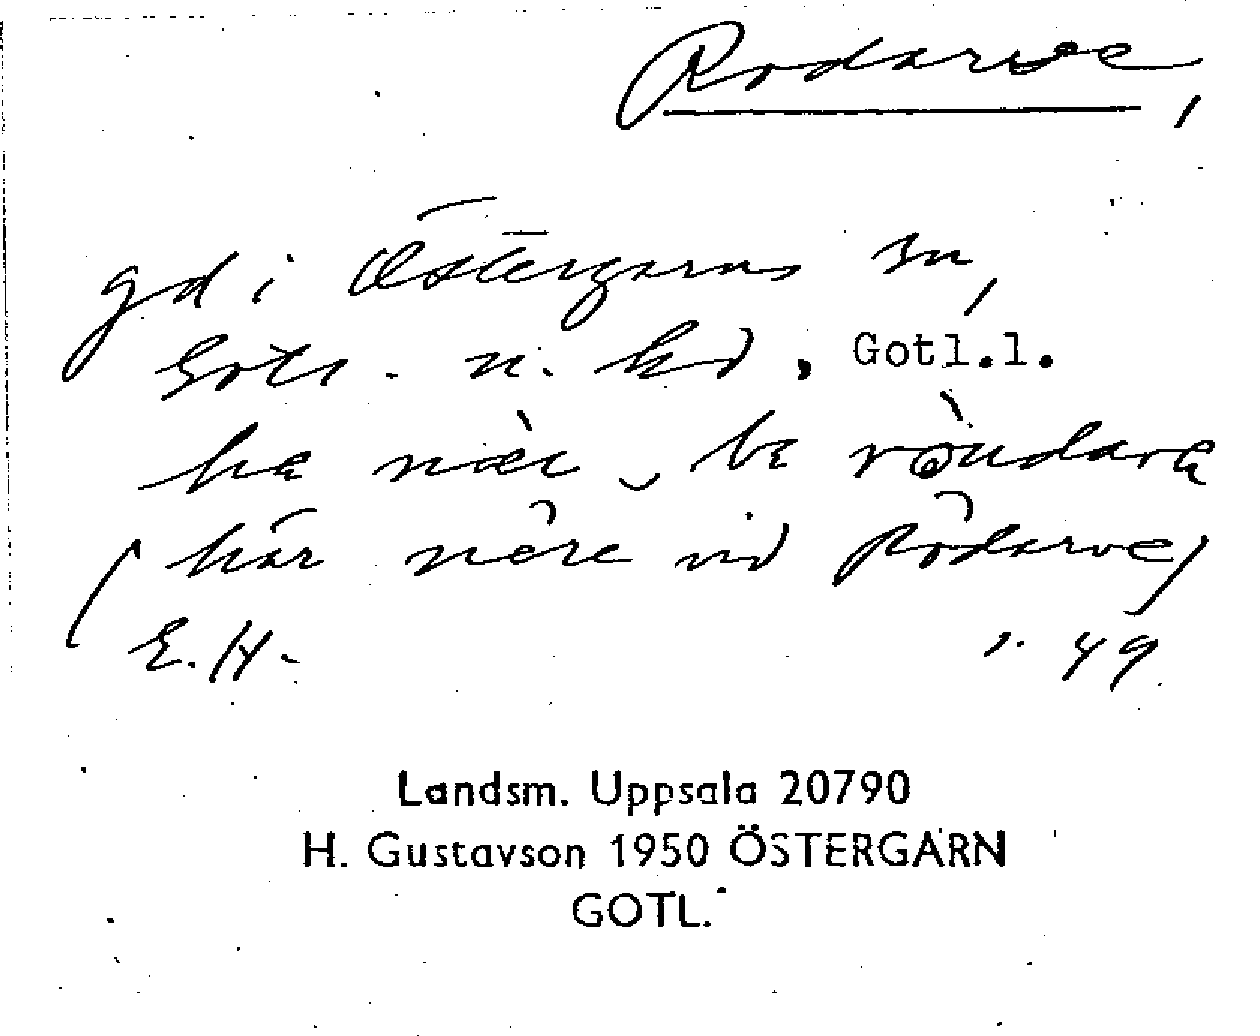 Rodarve,
gd i Östergarns sn,
Gotl. n. hd, Gotl.l.
(här nere vid Rodarve)
E.H. s. 49
Landsm. Uppsala 20790
H. Gustavson 1950 ÖSTERGARN
GOTL.